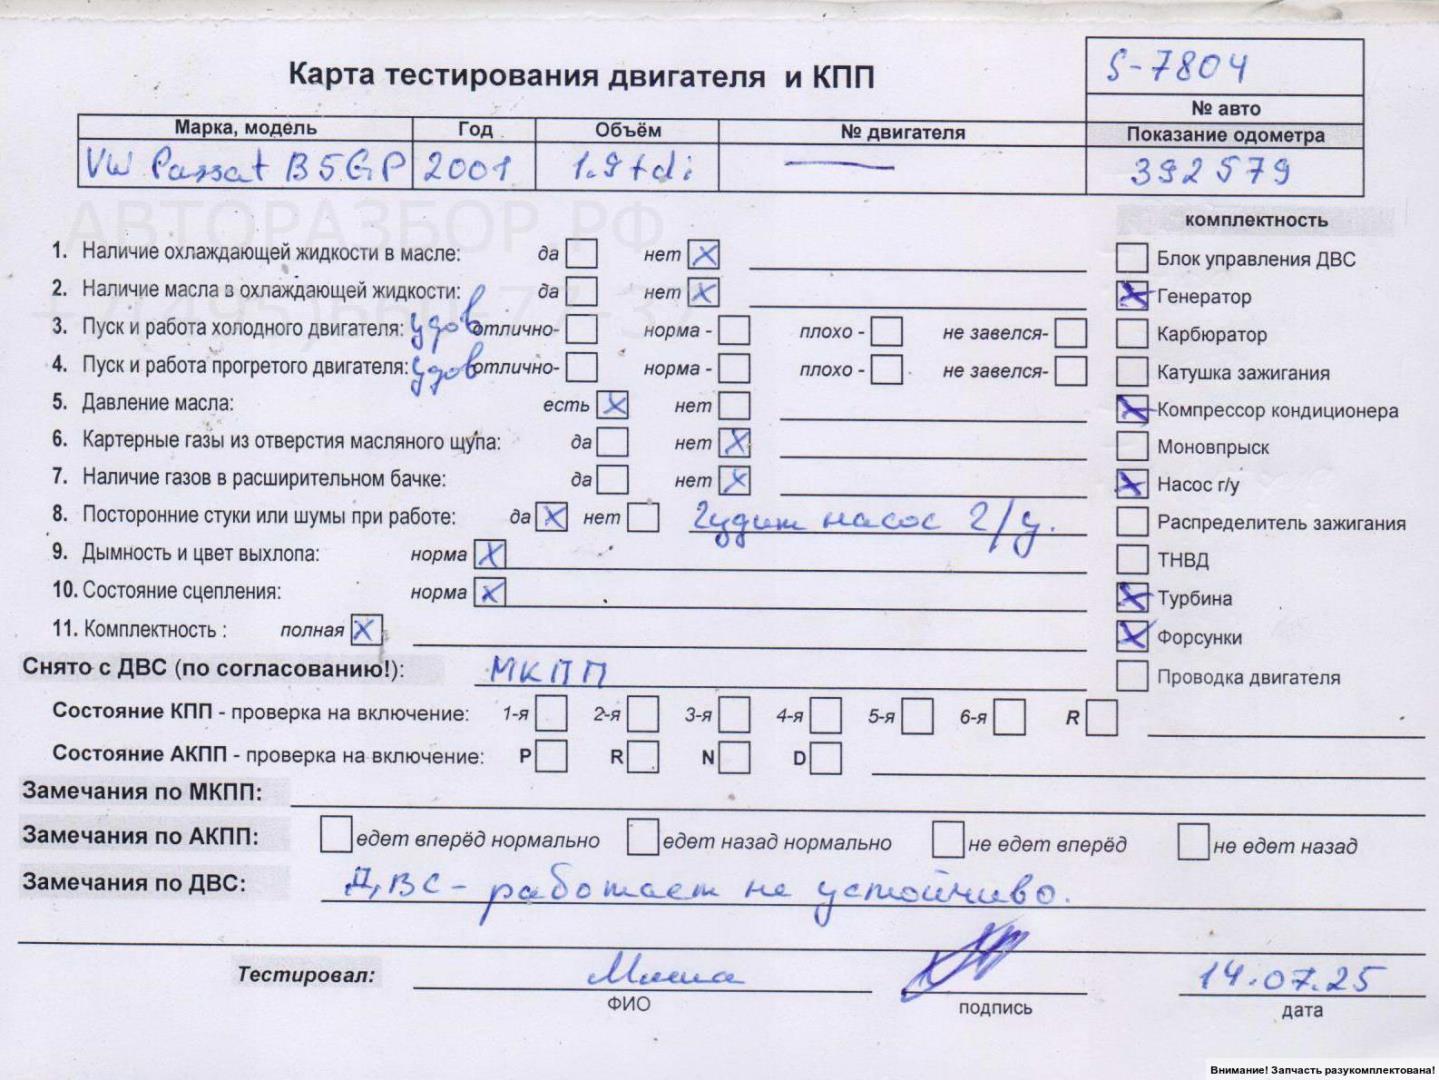 S-7804
Карта тестирования двигателя и КПП
№ авто
Марка, модель Год Объём № двигателя Показание одометра
VW Passat B5GP 2001 1.9 tdi — 392579
АВТОРАЗБОР.РФ
комплектность
1. Наличие охлаждающей жидкости в масле: да нет X
Блок управления ДВС
2. Наличие масла в охлаждающей жидкости: да нет X
X Генератор
+7(495)660-77-37
3. Пуск и работа холодного двигателя: удов отлично- норма - плохо - не завелся-
Карбюратор
4. Пуск и работа прогретого двигателя: удов отлично- норма - плохо - не завелся-
Катушка зажигания
5. Давление масла: есть X нет
X Компрессор кондиционера
6. Картерные газы из отверстия масляного щупа: да нет X
Моновпрыск
7. Наличие газов в расширительном бачке: да нет X
X Насос г/у
8. Посторонние стуки или шумы при работе: да X нет гудит насос г/у.
Распределитель зажигания
9. Дымность и цвет выхлопа: норма X
ТНВД
10. Состояние сцепления: норма X
X Турбина
11. Комплектность : полная X
X Форсунки
Снято с ДВС (по согласованию!): МКПП
Проводка двигателя
Состояние КПП - проверка на включение: 1-я 2-я 3-я 4-я 5-я 6-я R
Состояние АКПП - проверка на включение: P R N D
Замечания по МКПП:
Замечания по АКПП: едет вперёд нормально едет назад нормально не едет вперёд не едет назад
Замечания по ДВС: ДВС - работает не устойчиво.
Тестировал: Миша 14.07.25
ФИО подпись дата
Внимание! Запчасть разукомплектована!